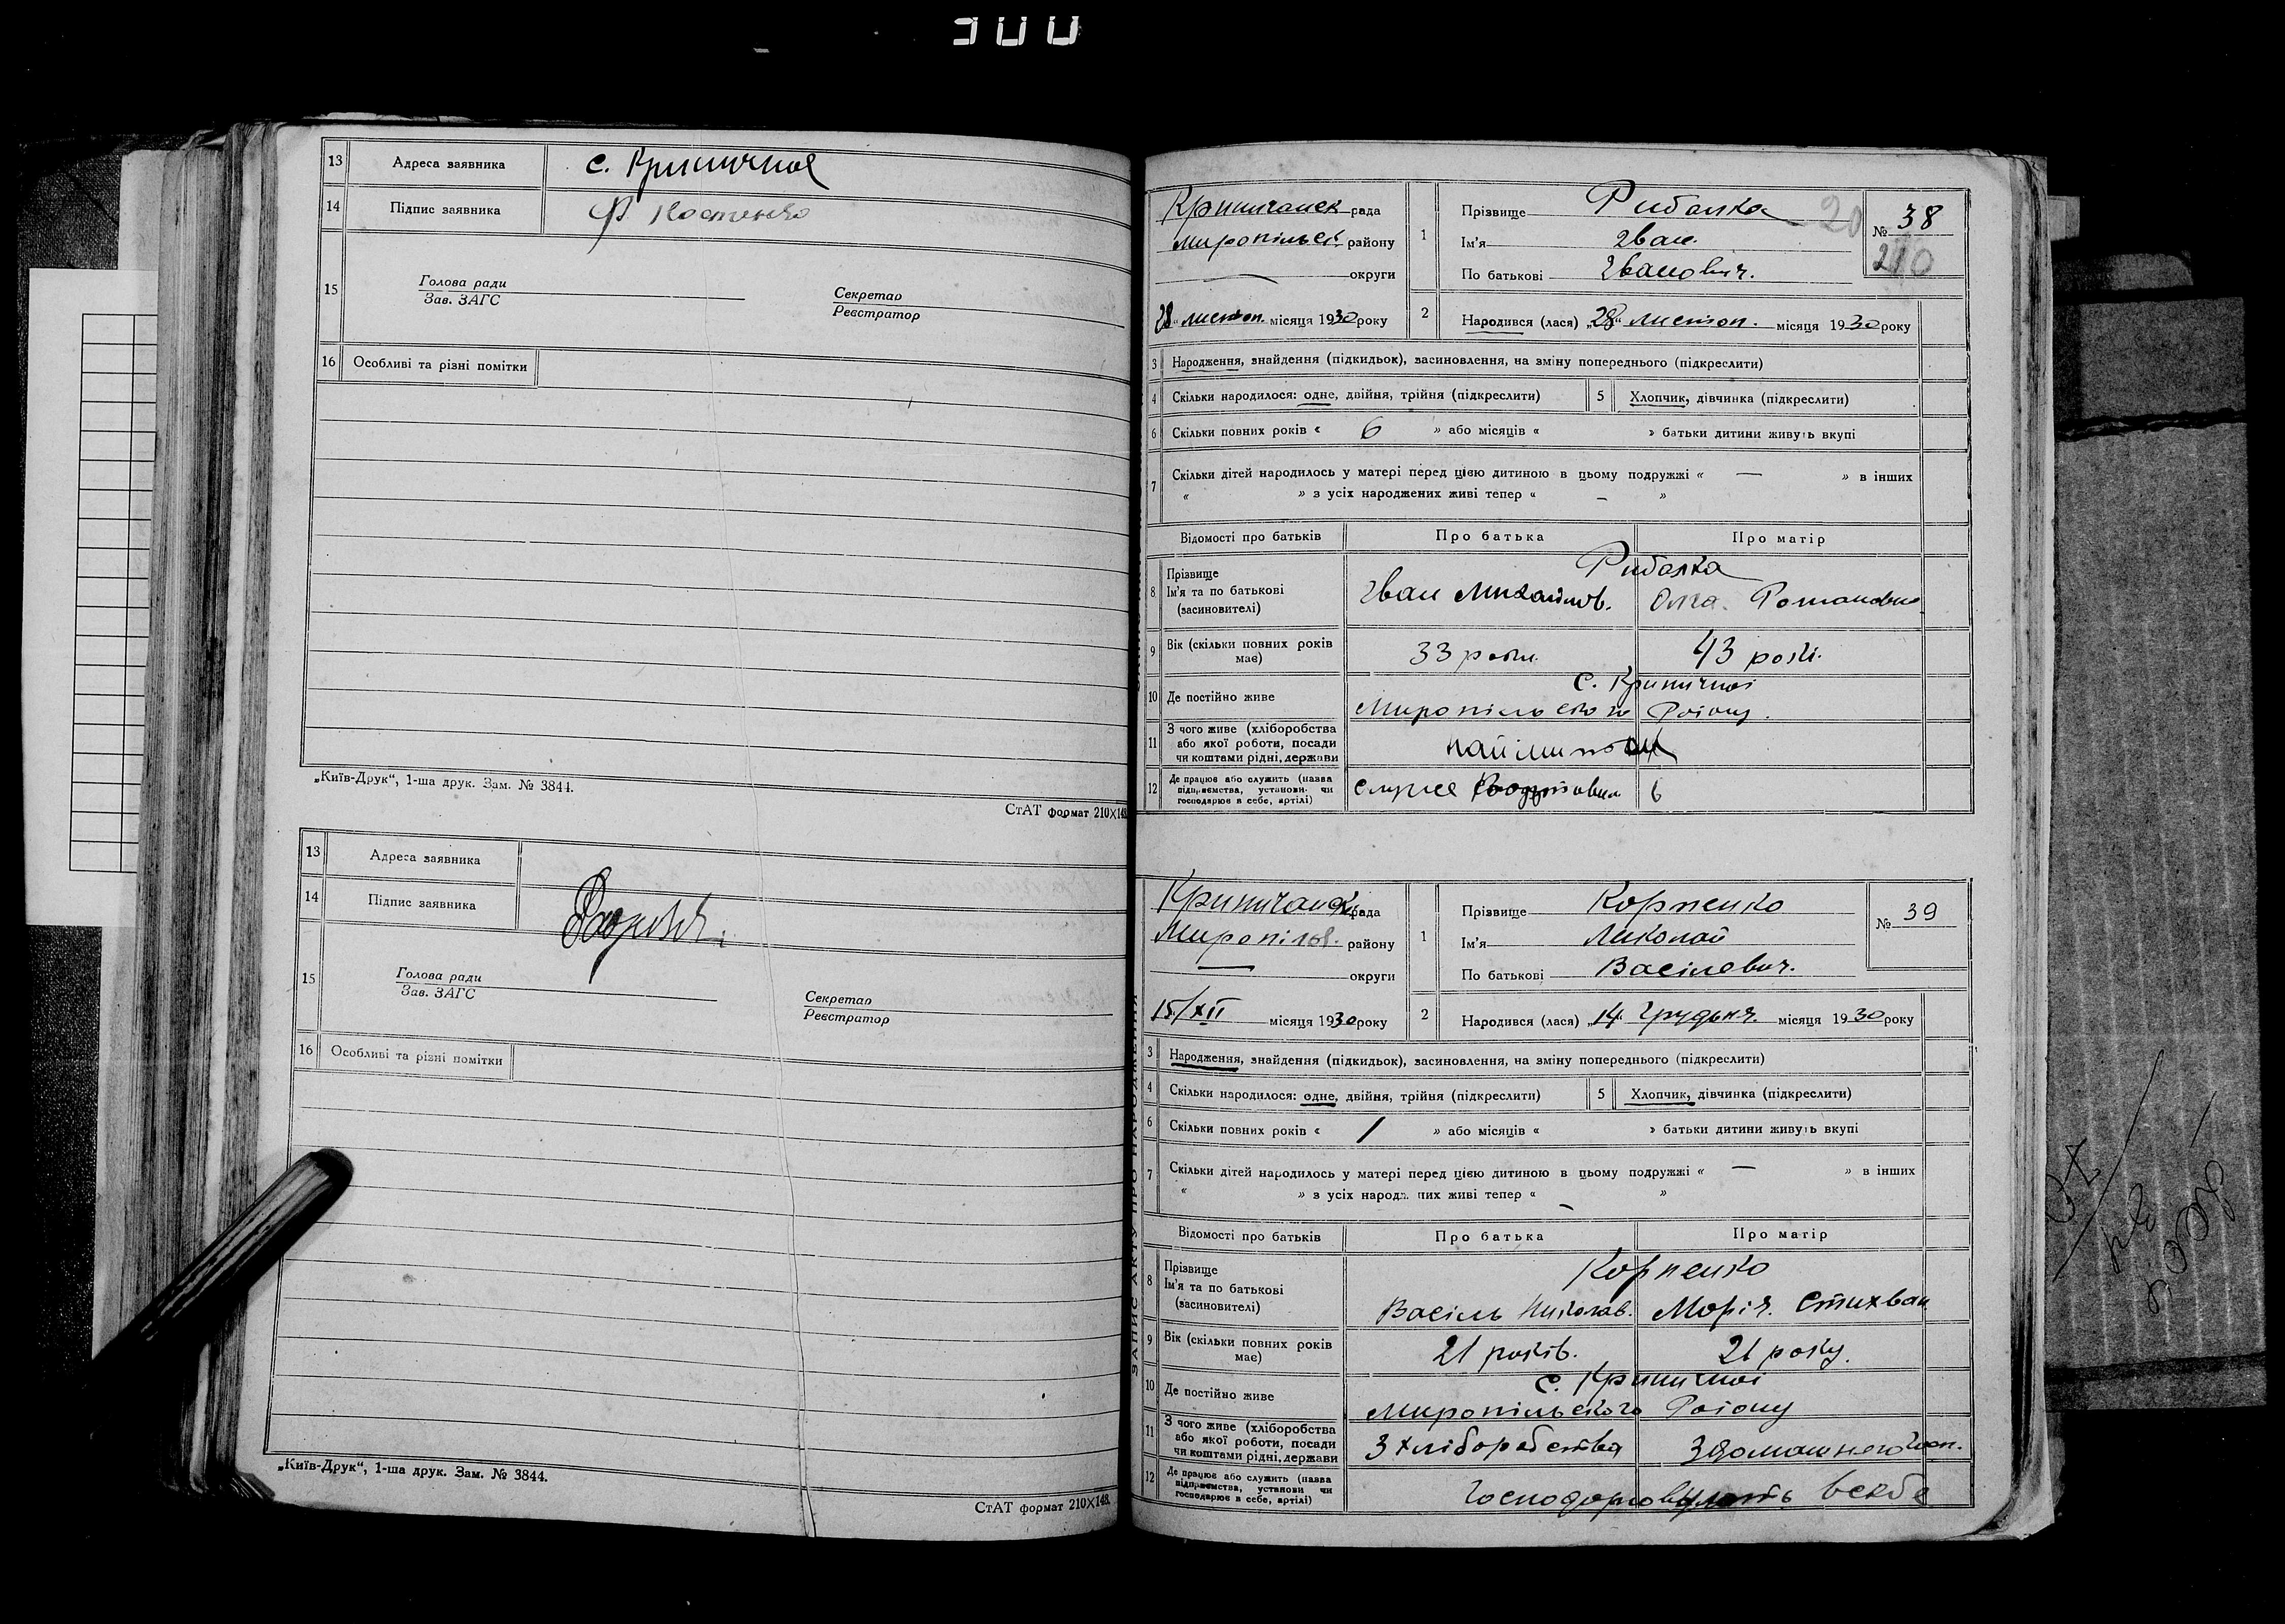 300
13 Адреса заявника с. Криничное
14 Підпис заявника Ф Костенко
15 Голова ради
Зав. ЗАГС
Секретар
Реєстратор
16 Особливі та різні помітки
„Київ-Друк“, 1-ша друк. Зам. № 3844.
СтАТ формат 210×148.
13 Адреса заявника
14 Підпис заявника
15 Голова ради
Зав. ЗАГС
Секретар
Реєстратор
16 Особливі та різні помітки
„Київ-Друк“, 1-ша друк. Зам. № 3844.
СтАТ формат 210×148.
Криничанск рада
Миропільск. району
округи
28 листоп. місяця 1930 року
1 Прізвище Рибалка
Ім'я Іван
По батькові Іванович.
№ 38
20
210
2 Народився (лася) „28“ листоп. місяця 1930 року
3 Народження, знайдення (підкидьок), засиновлення, на зміну попереднього (підкреслити)
4 Скільки народилося: одне, двійня, трійня (підкреслити) 5 Хлопчик, дівчинка (підкреслити)
6 Скільки повних років « 6 » або місяців « » батьки дитини живуть вкупі
7 Скільки дітей народилось у матері перед цією дитиною в цьому подружжі « — » в інших
« » з усіх народжених живі тепер « – »
Відомості про батьків Про батька Про матір
8 Прізвище Рибалка
Ім'я та по батькові Іван Михайлов. Олга. Романовна
(засиновителі)
9 Вік (скільки повних років має) 33 роки. 43 рокі.
10 Де постійно живе с. Криничної
Миропільского Району.
11 З чого живе (хліборобства
або якої роботи, посади
чи коштами рідні, держави
12 Де працює або служить (назва
підприємства, установи чи
господарює в себе, артілі)
ЗАПИС АКТУ ПРО НАРОДЖЕННЯ
рада
Миропільс. району
округи
15/XII місяця 1930 року
1 Прізвище Корпенко
Ім'я Миколай
По батькові Васілевич.
№ 39
2 Народився (лася) „14“ Грудьня. місяця 1930 року
3 Народження, знайдення (підкидьок), засиновлення, на зміну попереднього (підкреслити)
4 Скільки народилося: одне, двійня, трійня (підкреслити) 5 Хлопчик, дівчинка (підкреслити)
6 Скільки повних років « 1 » або місяців « » батьки дитини живуть вкупі
7 Скільки дітей народилось у матері перед цією дитиною в цьому подружжі « — » в інших
« » з усіх народжених живі тепер « – »
Відомості про батьків Про батька Про матір
8 Прізвище Корпенко
Ім'я та по батькові Васіль Николав. Морія. Стихван
(засиновителі)
9 Вік (скільки повних років має) 21 років. 21 року.
10 Де постійно живе с. Криничної
Миропільского Району
11 З чого живе (хліборобства
або якої роботи, посади
чи коштами рідні, держави
З хліборобства З домашнего Госп.
12 Де працює або служить (назва
підприємства, установи чи
господарює в себе, артілі)
Господорювують всебе